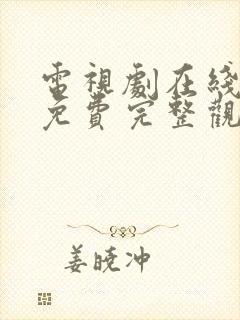 電視劇在綫
免費完整觀
姜曉冲